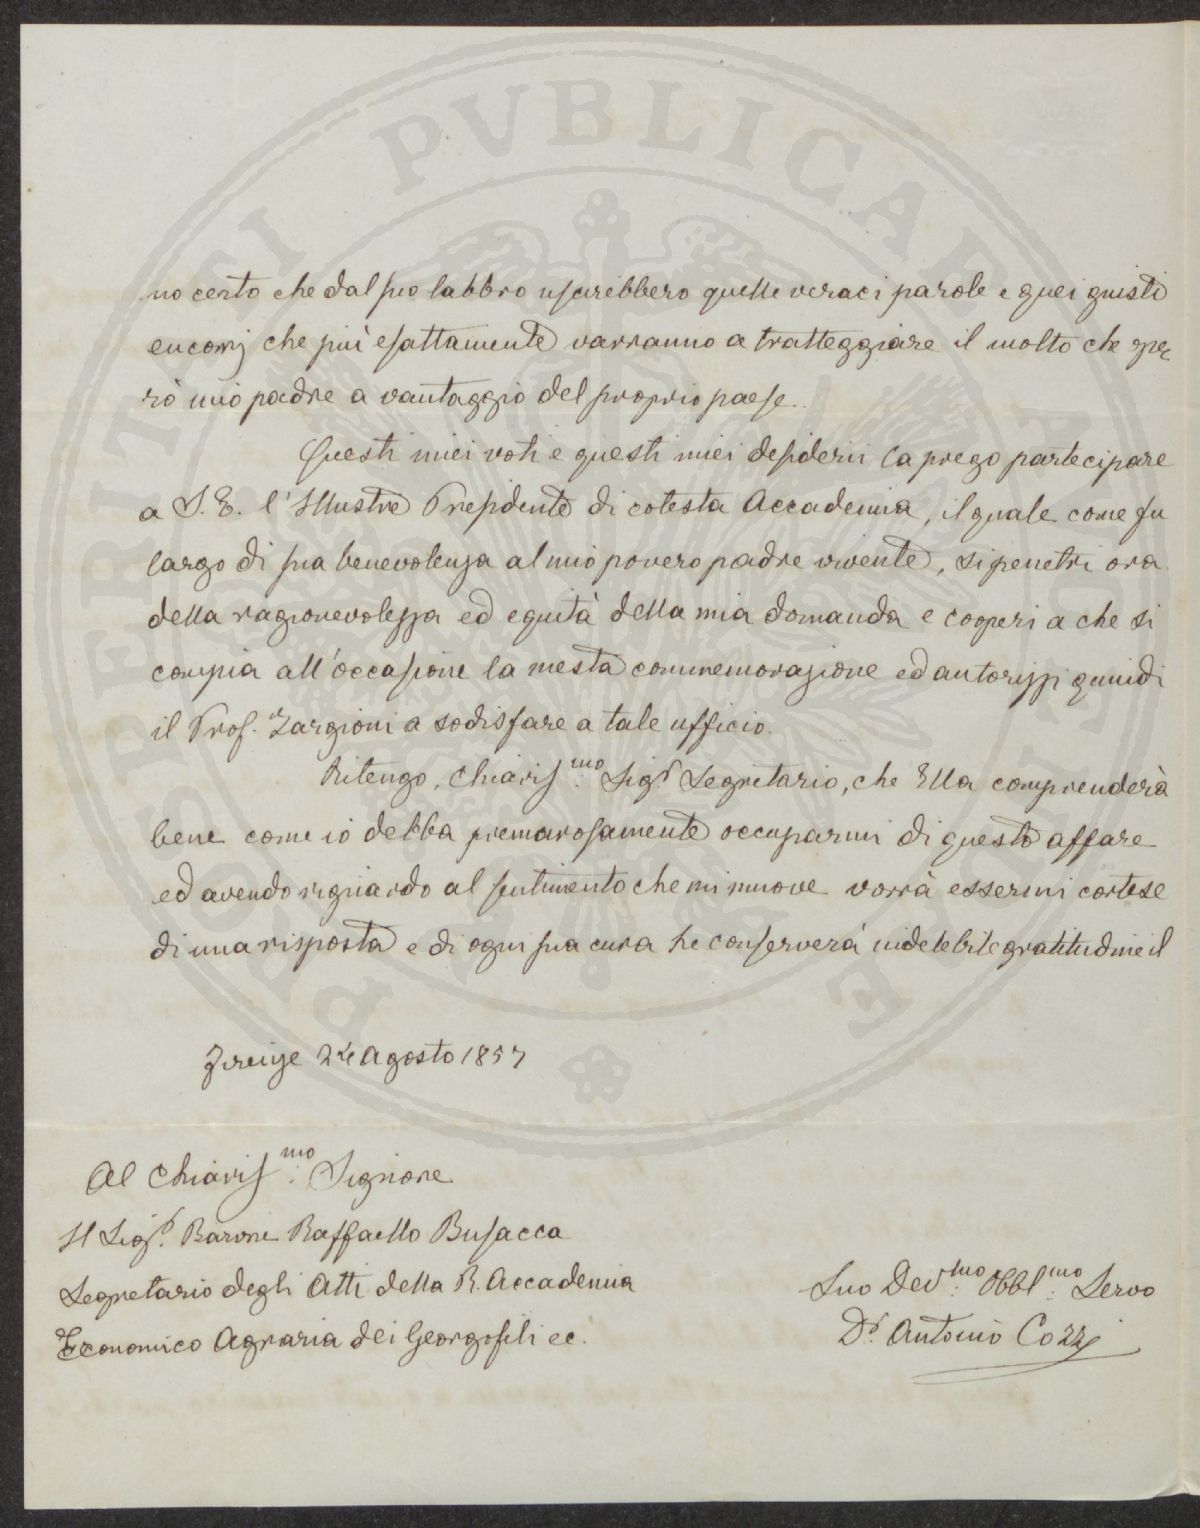 no certo che dal suo labbro uscirebbero quelle veraci parole e quei giusti
encomj che più esattamente varranno a tratteggiare il molto che ope-
rò mio padre a vantaggio del proprio paese.
Questi miei voti e questi miei desiderii la prego partecipare
a S. E. l'Illustre Presidente di cotesta Accademia, il quale come fu
largo di sua benevolenza al mio povero padre vivente, si penetri ora
della ragionevolezza ed equità della mia domanda e cooperi a che si
compia all'occasione la mesta commemorazione ed autorizzi quindi
il Prof. Targioni a sodisfare a tale ufficio.
Ritengo, Chiaris.mo Sigr. Segretario, che Ella comprenderà
bene come io debba premurosamente occuparmi di questo affare
ed avendo riguardo al sentimento che mi muove vorrà essermi cortese
di una risposta e di ogni sua cura ne conserverà indelebile gratitudine il
Firenze 24 Agosto 1857
Al Chiaris.mo Signore
Il Sigr. Barone Raffaello Busacca
Segretario degli Atti della R. Accademia
Economico Agraria dei Georgofili ec.
Suo Dev.mo Obbl.mo Servo
Dr. Antonio Cozzi
PROSPERITATI PVBLICAE AVGENDAE